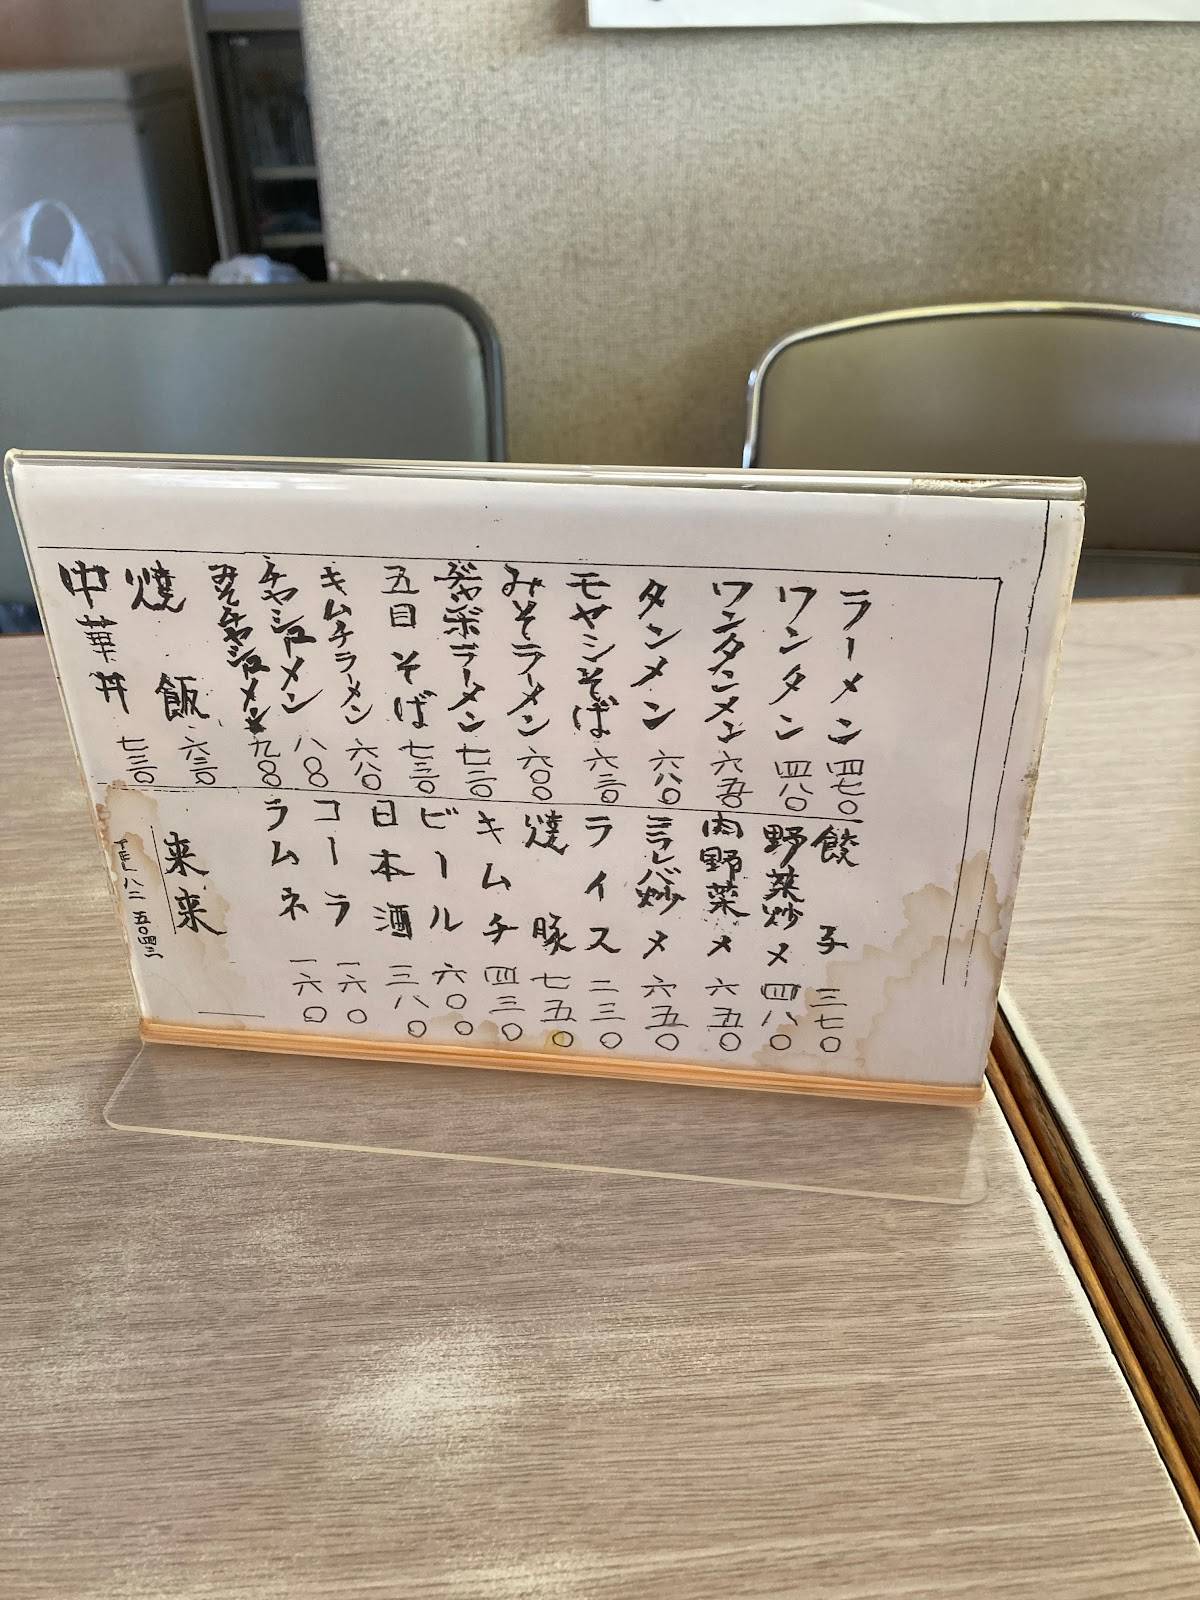 ラーメン 四七〇
ワンタン 四八〇
ワンタンメン 六五〇
タンメン 六八〇
モヤシそば 六三〇
みそラーメン 六〇〇
ラーメン 七三〇
五目そば 七三〇
キムチラーメン 六八〇
チャーシューメン 八〇〇
みそチャーシューメン 九〇〇
焼飯 六三〇
中華丼 七三〇
餃子 三七〇
野菜炒メ 四八〇
肉野菜メ 六五〇
ニラレバ炒メ 六五〇
ライス 二三〇
焼豚 七五〇
キムチ 四三〇
ビール 六〇〇
日本酒 三八〇
コーラ 一六〇
ラムネ 一六〇
来来
TEL 八二 五〇四三